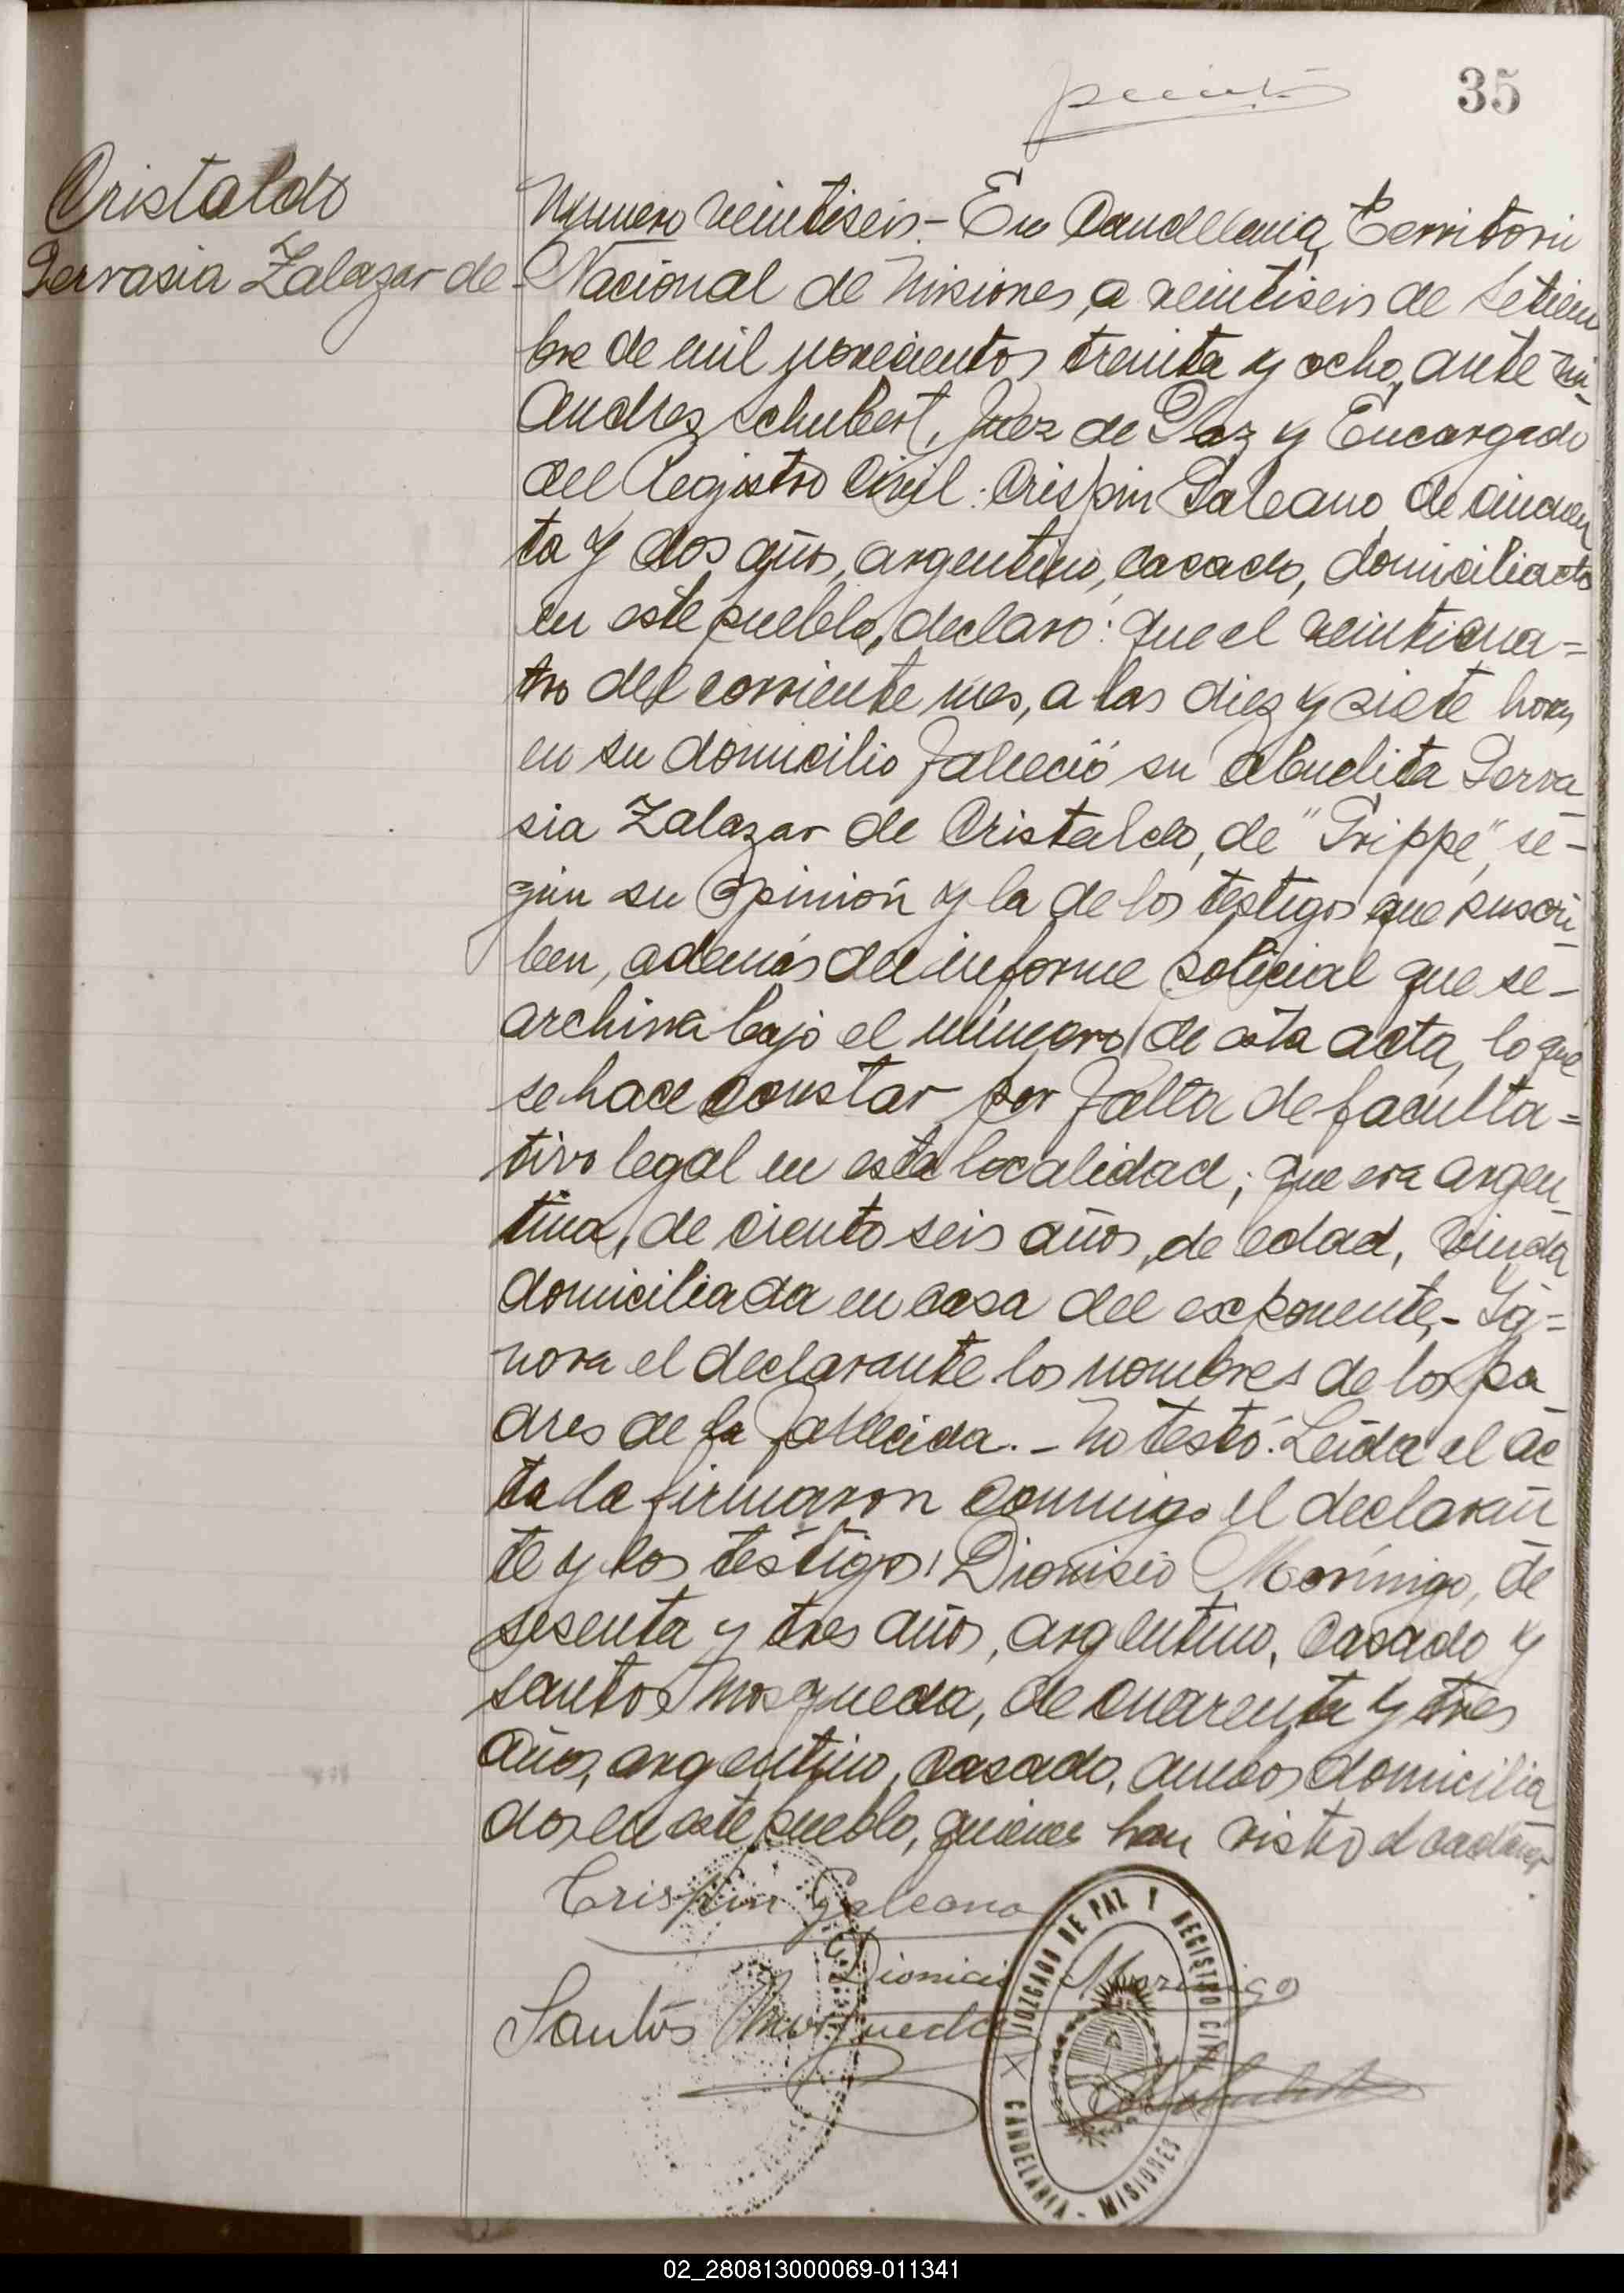 35
Cristaldo
Gervasia Zalazar de
Número veintiseis.- En Candelaria, Territorio
Nacional de Misiones, a veintiseis de Setiem
bre de mil novecientos treinta y ocho, ante mi
Andres Schubert, Juez de Paz y Encargado
del Registro Civil: Crispin Galeano de cincuen
ta y dos años, argentino, casado, domiciliado
en este pueblo, declaró: que el veinticua=
tro del corriente mes, a las diez y siete horas
en su domicilio falleció su abuelita Gerva_
sia Zalazar de Cristaldo, de "Grippe", se-
gún su opinión y la de los testigos que suscri_
ben, además del informe policial que se-
archiva bajo el número de esta acta, lo que
se hace constar por falta de faculta=
tivo legal en esta localidad; que era argen_
tina, de ciento seis años, de edad, viuda
domiciliada en casa del exponente,- Ig=
nora el declarante los nombres de los pa
dres de la fallecida.- No testó. Leida el ac
ta la firmaron conmigo el declaran
te y los testigos: Dionisio Morinigo, de
sesenta y tres años, argentino, casado y
Santos Mosqueda, de cuarenta y tres
años, argentino, casado, ambos domicilia
dos en este pueblo, quienes han visto el cadáver
Crispin Galeano
Dionicio Morinigo
Santos Mosqueda
JUZGADO DE PAZ Y REGISTRO CIVIL
CANDELARIA - MISIONES
02_280813000069-011341